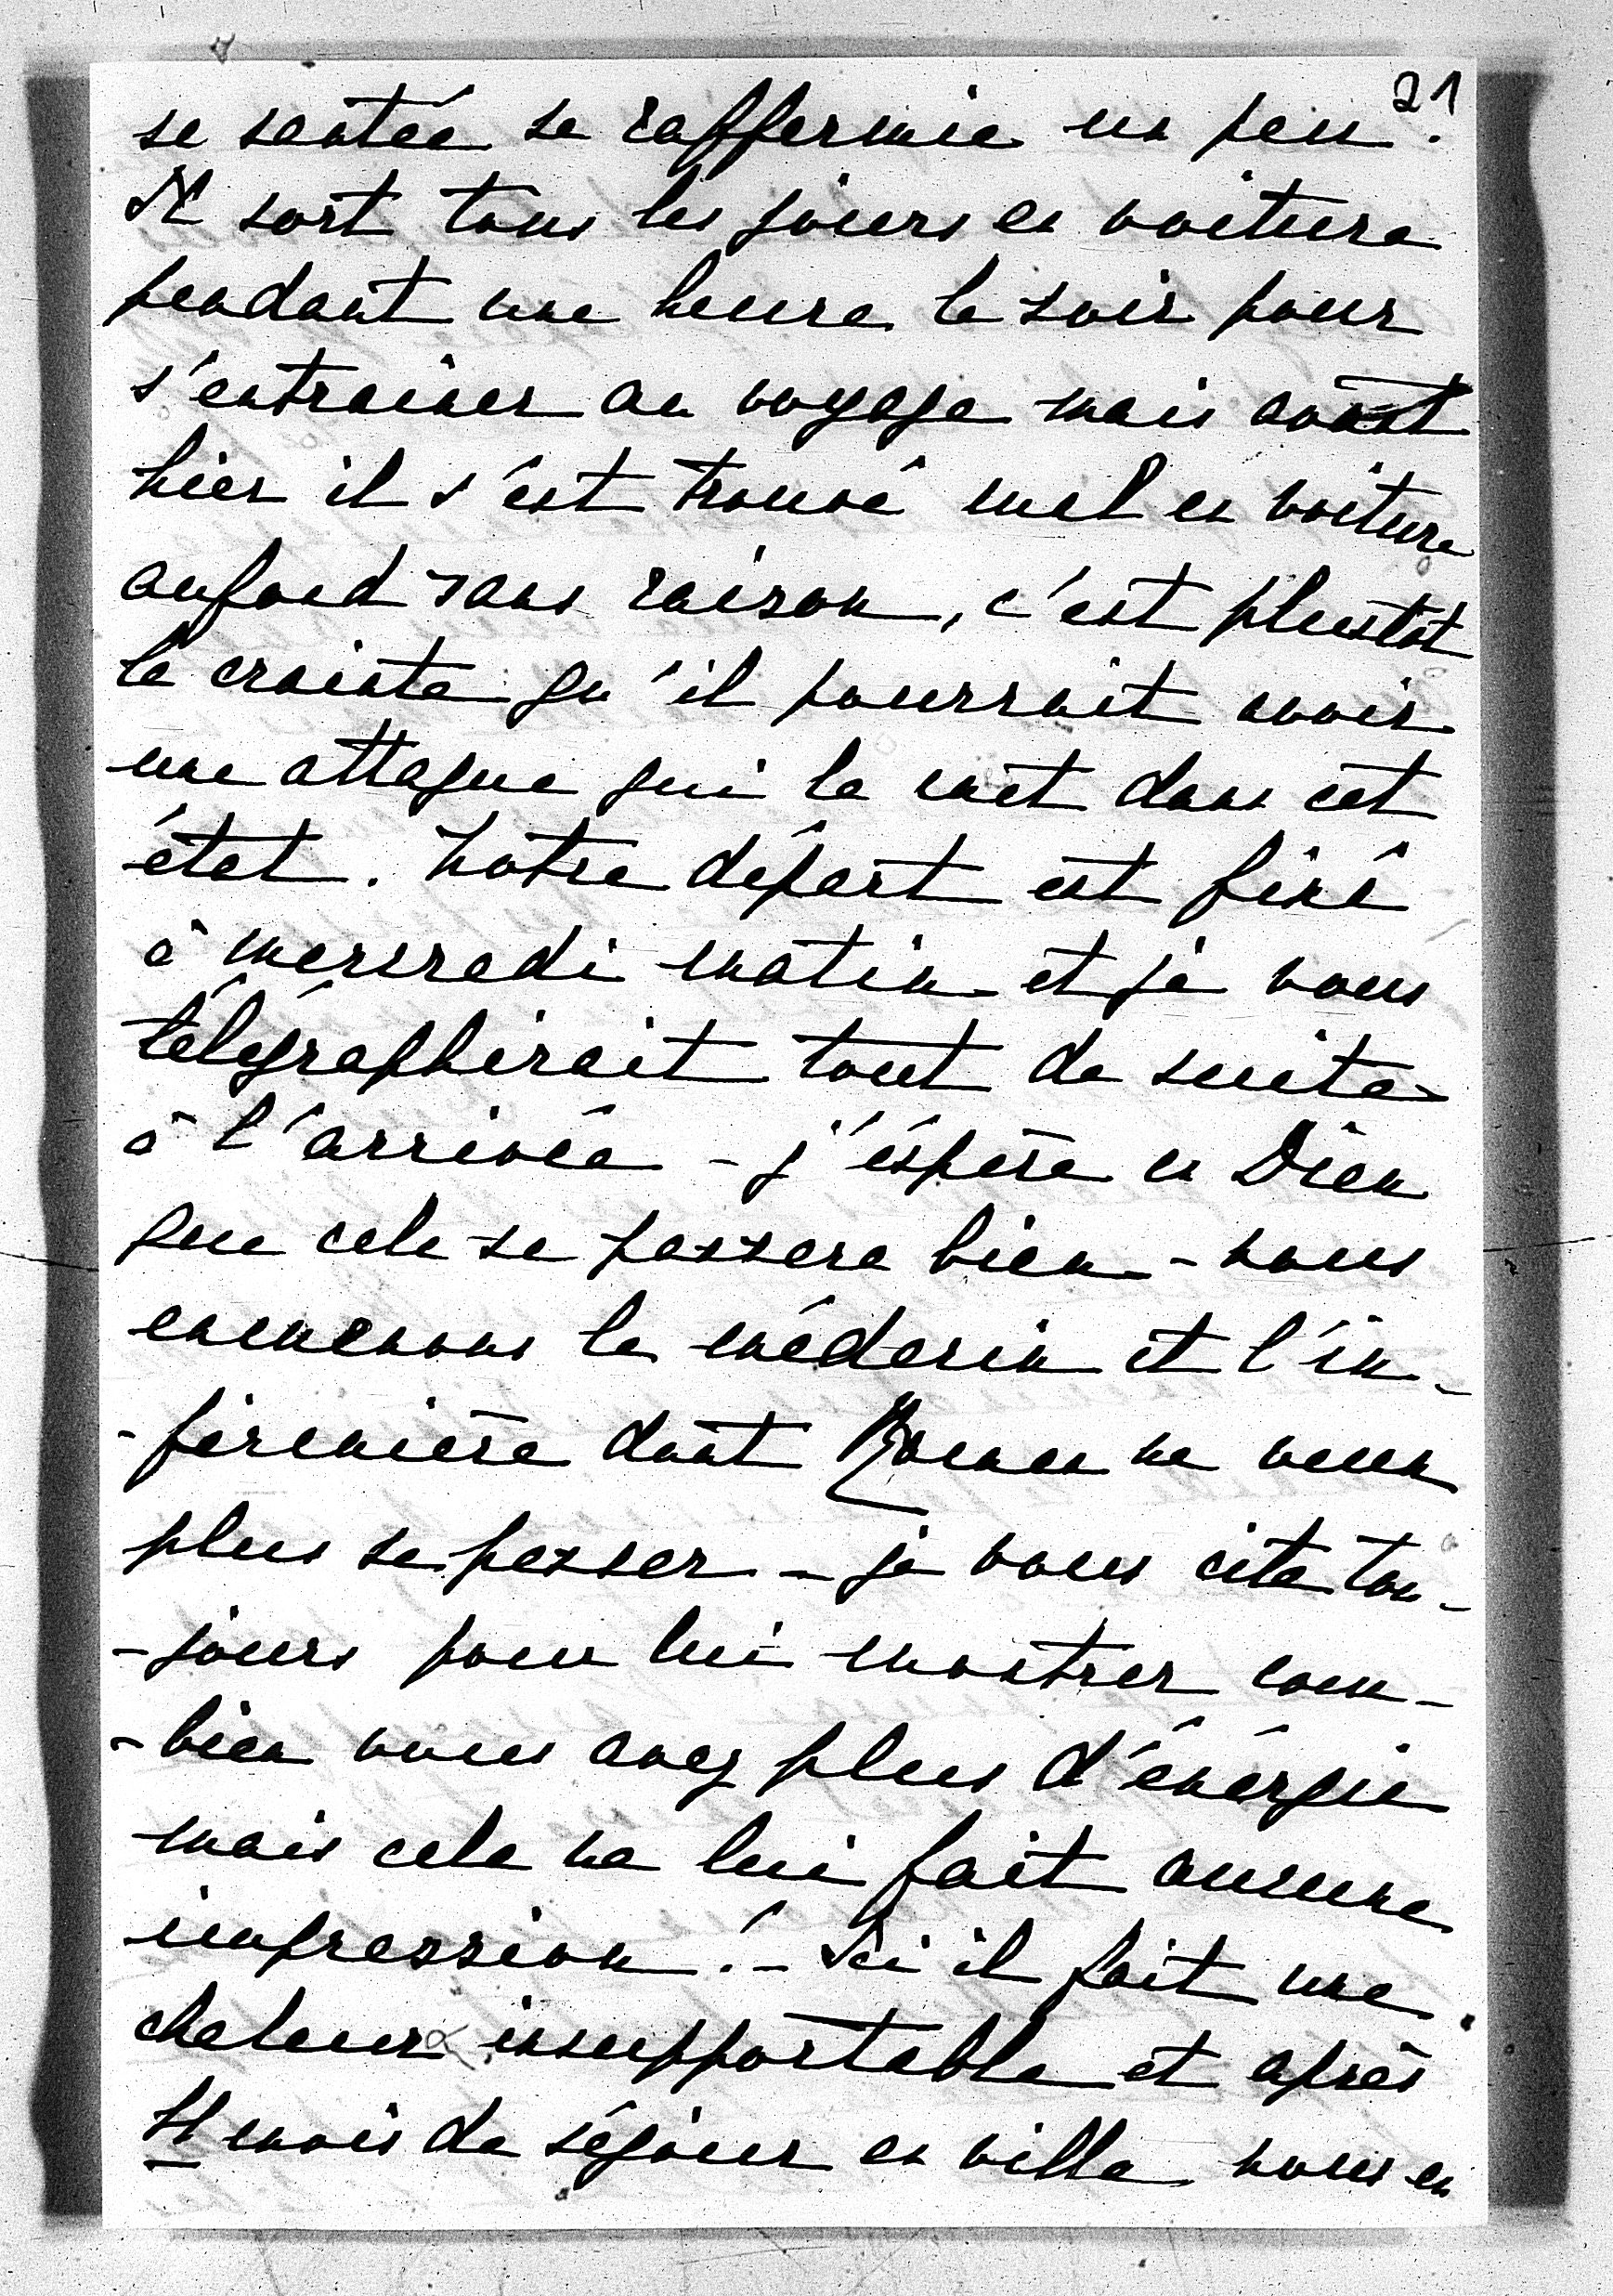 21
sa santée se raffermie un peu.
Il sort tous les jours en voiture
pendant une heure le soir pour
s'entrainer au voyage mais avant
hier il s'est trouvé mal en voiture
aufond sans raison, c'est plustôt
la crainte qu'il pourrait avoir
une attaque qui le met dans cet
état. Notre départ est fixé
à mercredi matin et je vous
télégraphirait tout de suite
à l'arrivée - j'éspère en Dieu
que cela se passera bien - nous
emmenons le médecin et l'in-
-firmière dont Roman ne veux
plus se passer - je vous cite tou-
-jours pour lui montrer com-
-bien vous avez plus d'énérgie
mais cela ne lui fait aucune
impression! - Ici il fait une
chaleur insupportable et après
11 mois de séjour en ville nous en